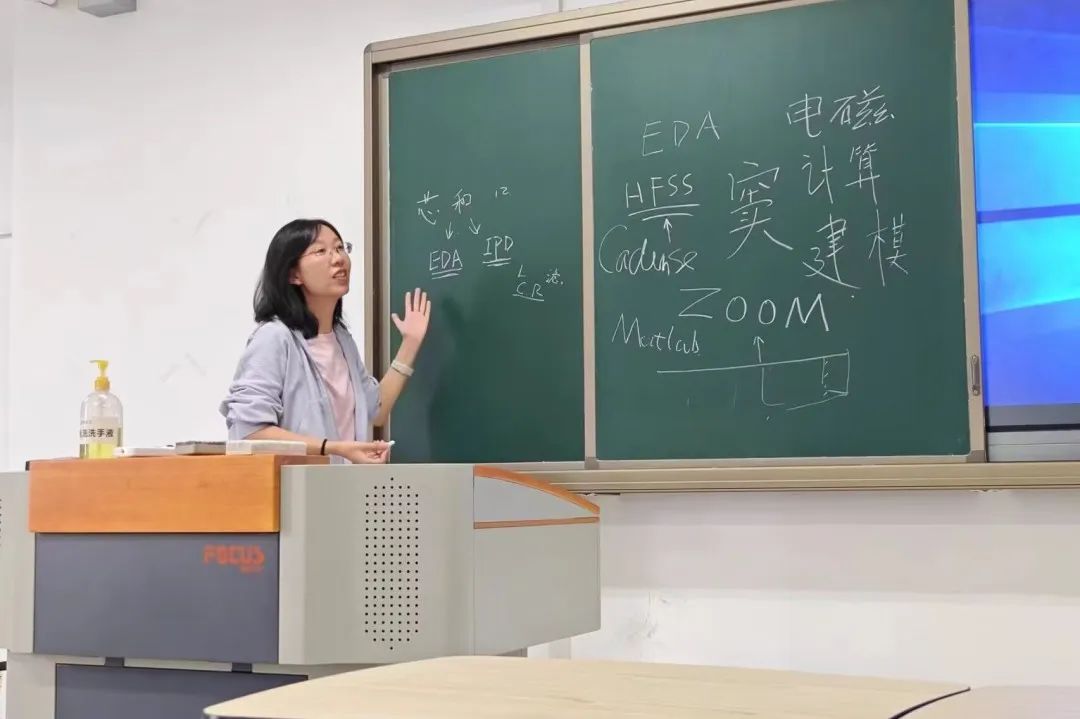 芯和 12
EDA IPD
L
C R 滤.
EDA
HFSS
Cadense
实
电磁
计算
建模
ZOOM
Matlab
洗手液
FOCUS